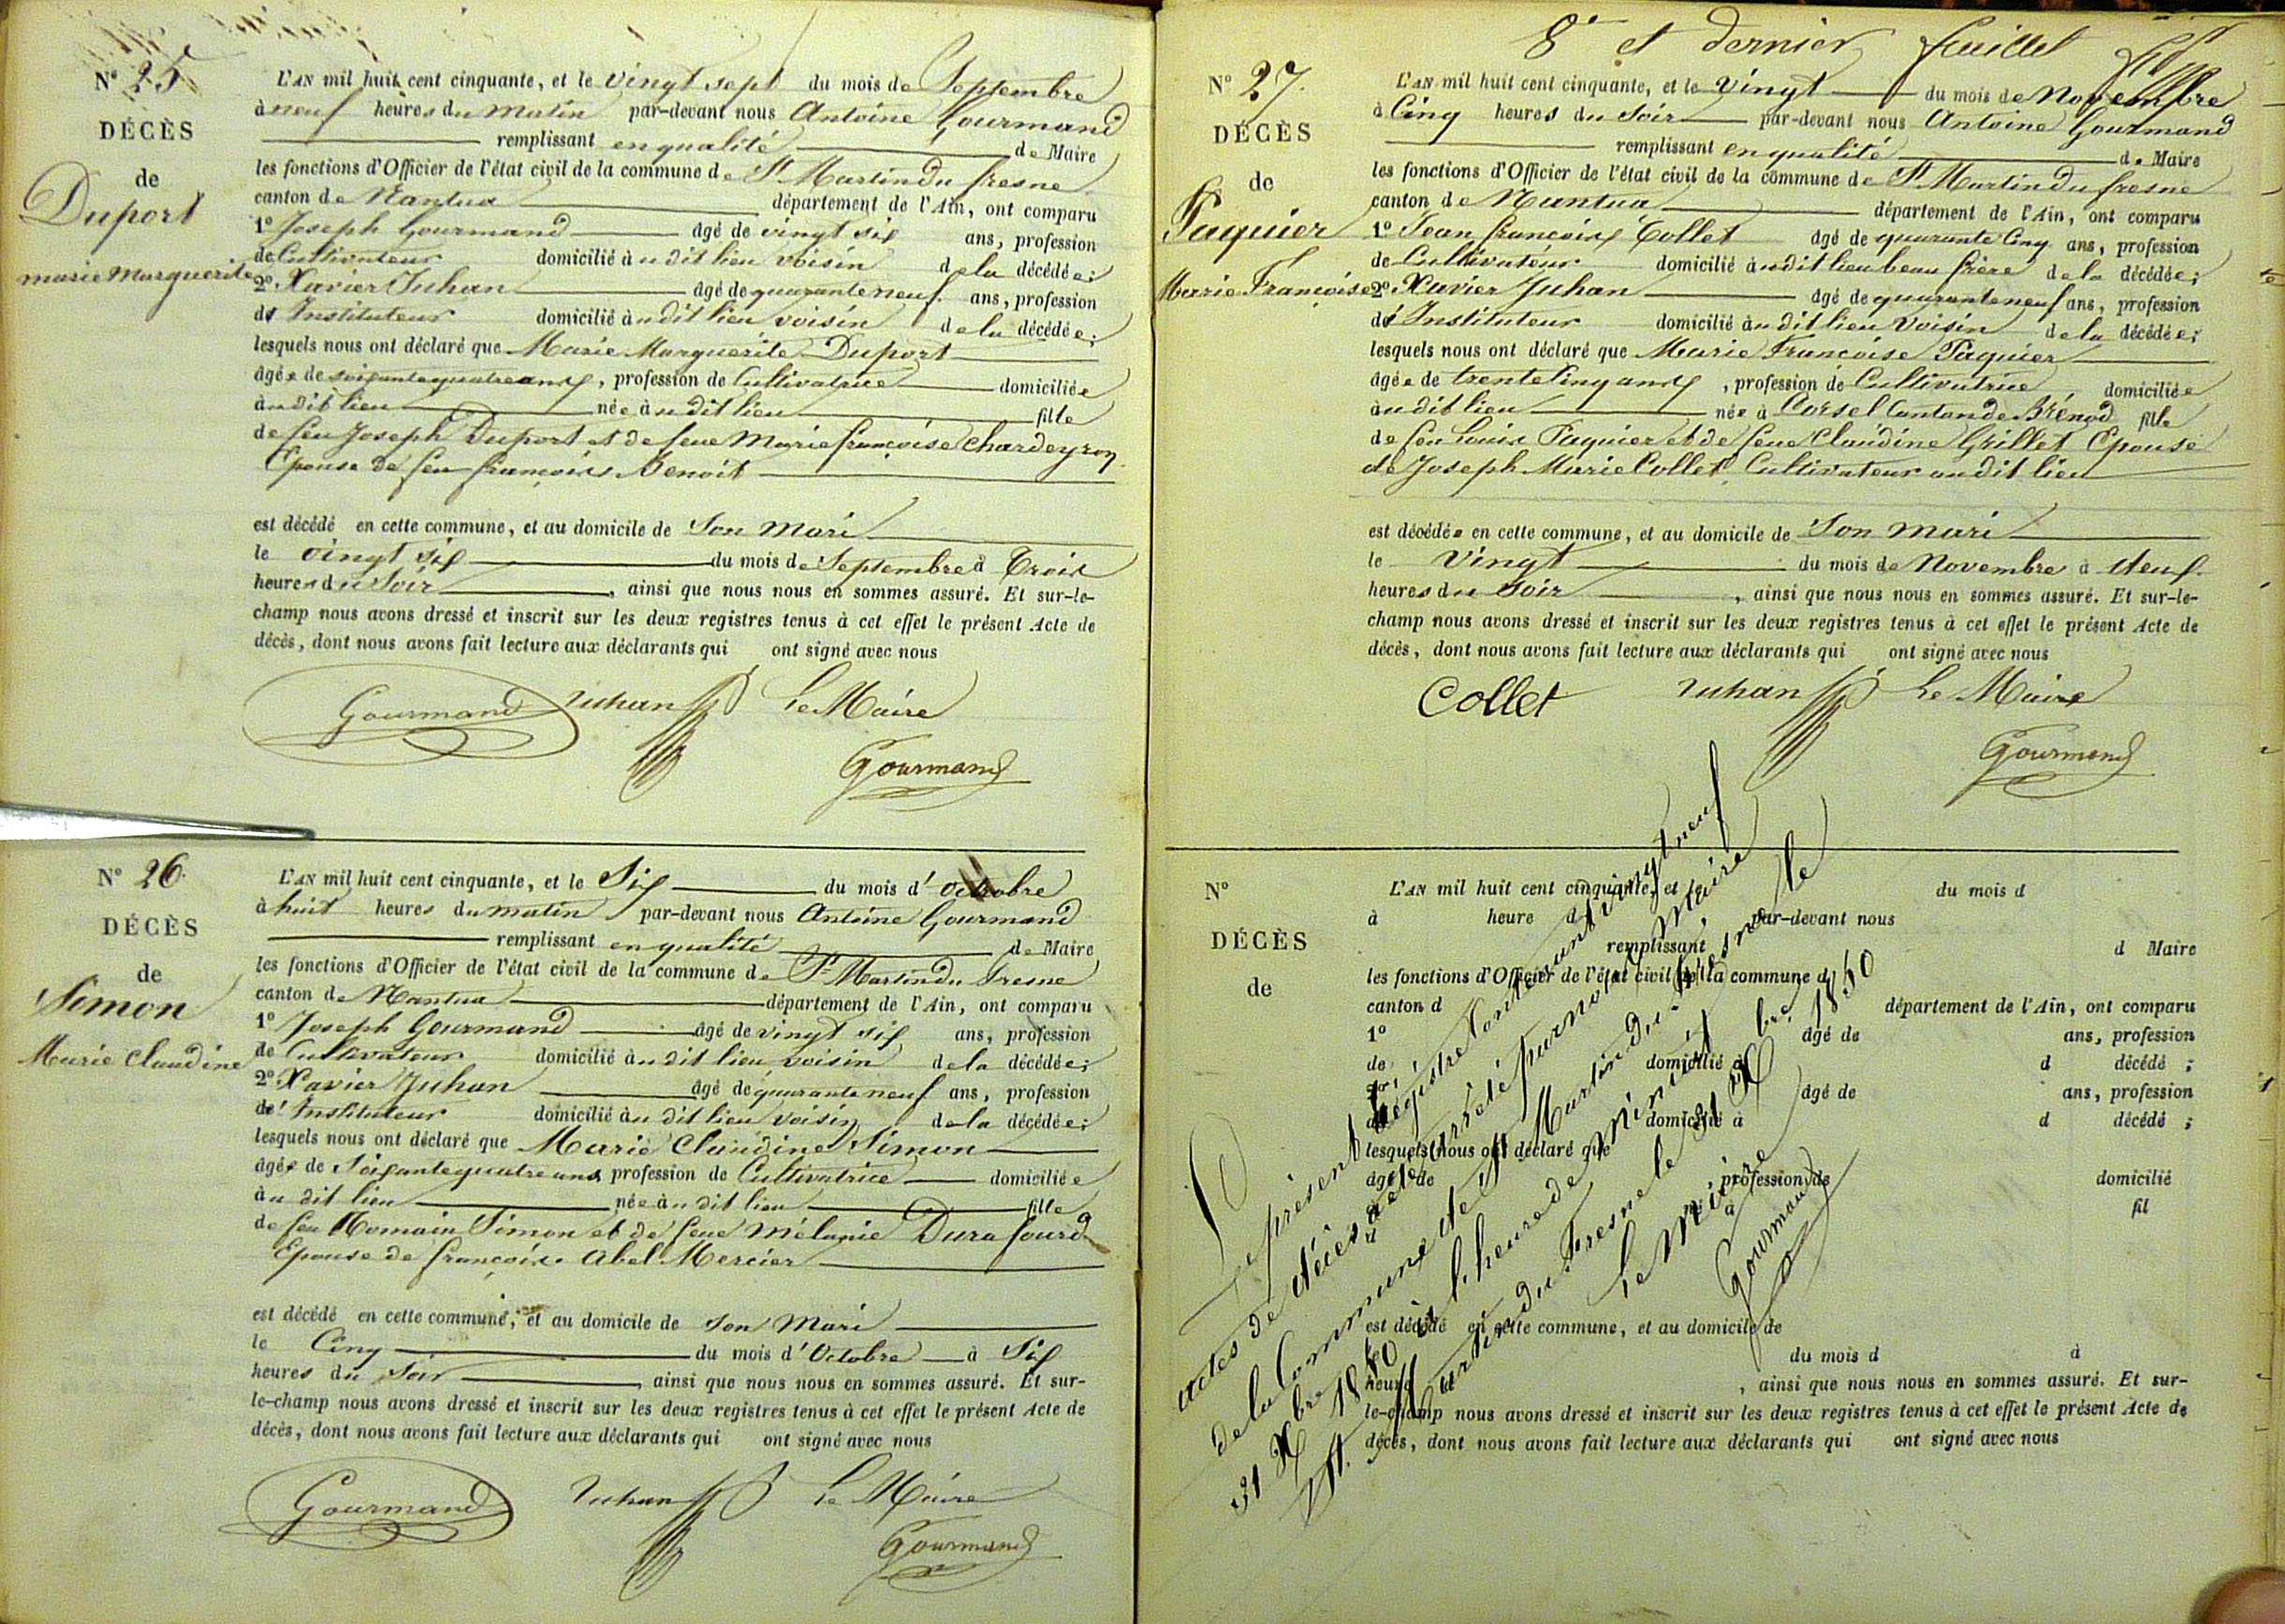 N° 25
DÉCÈS
de
Duport
marie Marguerite
L'AN mil huit cent cinquante, et le vingt sept du mois de Septembre
à neuf heures du matin par-devant nous Antoine Gourmand
remplissant en qualité de Maire
les fonctions d'Officier de l'état civil de la commune de St Martin du fresne
canton de Nantua département de l'Ain, ont comparu
1° Joseph Gourmand âgé de vingt six ans, profession
de Cultivateur domicilié à u dit lieu voisin de la décédée;
2° Xavier Juhan âgé de quarante neuf ans, profession
d' Instituteur domicilié à u dit lieu voisin de la décédée;
lesquels nous ont déclaré que Marie Marguerite Duport
âgée de soixante quatre ans, profession de Cultivatrice domiciliée
à u dit lieu née à u dit lieu fille
de feu Joseph Duport et de feue Marie françoise Chardeyron
Epouse de feu françois Benoit
est décédé en cette commune, et au domicile de Son Mari
le vingt six du mois de Septembre à Trois
heures du Soir, ainsi que nous nous en sommes assuré. Et sur-le-
champ nous avons dressé et inscrit sur les deux registres tenus à cet effet le présent Acte de
décès, dont nous avons fait lecture aux déclarants qui ont signé avec nous
Gourmand Juhan Le Maire
Gourmand
N° 26
DÉCÈS
de
Simon
Marie Claudine
L'AN mil huit cent cinquante, et le Six du mois d' Octobre
à huit heures du matin par-devant nous Antoine Gourmand
remplissant en qualité de Maire
les fonctions d'Officier de l'état civil de la commune de St Martin du Fresne
canton de Nantua département de l'Ain, ont comparu
1° Joseph Gourmand âgé de vingt six ans, profession
de Cultivateur domicilié à u dit lieu voisin de la décédée;
2° Xavier Juhan âgé de quarante neuf ans, profession
d' Instituteur domicilié à u dit lieu voisin de la décédée;
lesquels nous ont déclaré que Marie Claudine Simon
âgée de Soixante quatre ans profession de Cultivatrice domiciliée
à u dit lieu née à u dit lieu fille
de feu Romain Simon et de feue Mélanie Durafourd
Epouse de françois Abel Mercier
est décédé en cette commune, et au domicile de Son Mari
le Cinq du mois d' Octobre à Six
heures du Soir, ainsi que nous nous en sommes assuré. Et sur-
le-champ nous avons dressé et inscrit sur les deux registres tenus à cet effet le présent Acte de
décès, dont nous avons fait lecture aux déclarants qui ont signé avec nous
Gourmand Juhan Le Maire
Gourmand
8e et dernier feuillet
N° 27.
DÉCÈS
de
Paquier
Marie Francoise
L'AN mil huit cent cinquante, et le vingt du mois de Novembre
à Cinq heures du Soir par-devant nous Antoine Gourmand
remplissant en qualité de Maire
les fonctions d'Officier de l'état civil de la commune de St Martin du fresne
canton de Nantua département de l'Ain, ont comparu
1° Jean françois Collet âgé de quarante Cinq ans, profession
de Cultivateur domicilié à u dit lieu beau frère de la décédée;
2° Xavier Juhan âgé de quarante neuf ans, profession
d' Instituteur domicilié à u dit lieu Voisin de la décédée;
lesquels nous ont déclaré que Marie Francoise Paquier
âgée de trente Cinq ans, profession de Cultivatrice domiciliée
à u dit lieu née à Corsel Canton de Brénod fille
de feu Louis Paquier et de feue Claudine Grillet Epouse
de Joseph Marie Collet Cultivateur au dit lieu
est décédée en cette commune, et au domicile de Son mari
le Vingt du mois de Novembre à Neuf
heures du Soir, ainsi que nous nous en sommes assuré. Et sur-le-
champ nous avons dressé et inscrit sur les deux registres tenus à cet effet le présent Acte de
décès, dont nous avons fait lecture aux déclarants qui ont signé avec nous
Collet Juhan Le Maire
Gourmand
N°
DÉCÈS
de
L'AN mil huit cent cinquante, et le du mois d
à heure d par-devant nous
remplissant d Maire
les fonctions d'Officier de l'état civil de la commune d
canton d département de l'Ain, ont comparu
1° âgé de ans, profession
de domicilié à d décédé ;
2° âgé de ans, profession
de domicilié à d décédé ;
lesquels nous ont déclaré que
âgé de profession de domicilié
à à fil
est décédé en cette commune, et au domicile de
le du mois d à
heure , ainsi que nous nous en sommes assuré. Et sur-
le-champ nous avons dressé et inscrit sur les deux registres tenus à cet effet le présent Acte de
décès, dont nous avons fait lecture aux déclarants qui ont signé avec nous
Le présent Régistre Contenant vingt neuf
actes de décès a été arrêté par nous Maire
de la Commune de St Martin du fresne le
31 Xbre 1850 à l'heure de minuit
St Martin du Fresne le 31 Xbre 1850
Le Maire
Gourmand